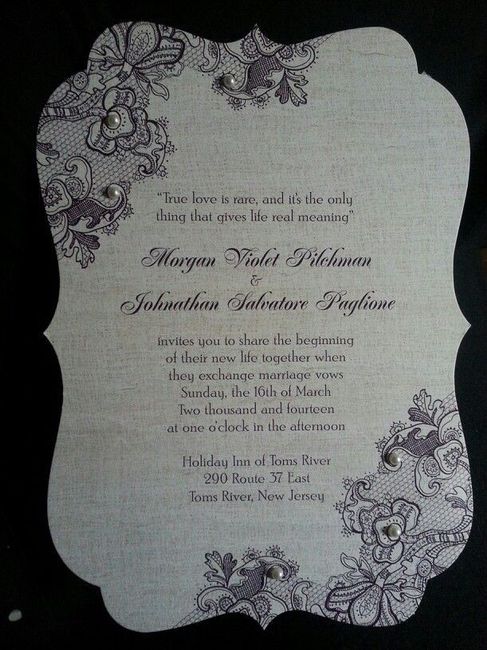 “True love is rare, and it's the only
thing that gives life real meaning”
Morgan Violet Pilchman
&
Johnathan Salvatore Paglione
invites you to share the beginning
of their new life together when
they exchange marriage vows
Sunday, the 16th of March
Two thousand and fourteen
at one o'clock in the afternoon
Holiday Inn of Toms River
290 Route 37 East
Toms River, New Jersey